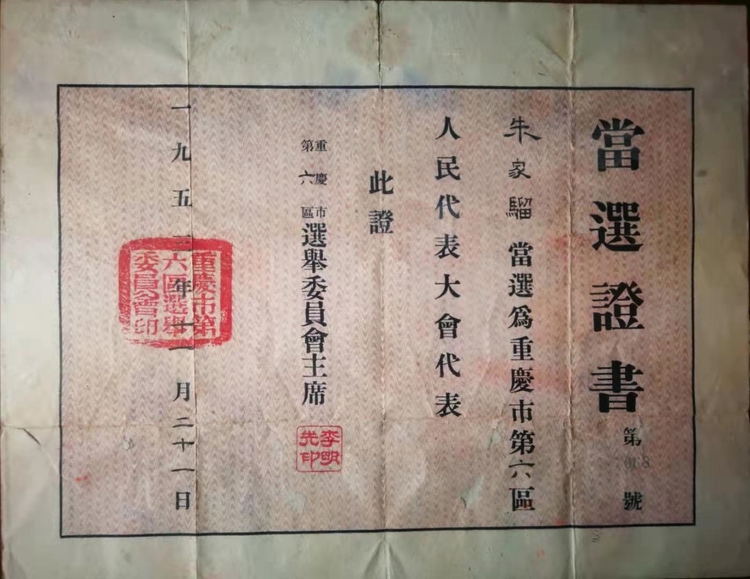 當選證書
第 號
朱家騮 當選爲重慶市第六區
人民代表大會代表
此證
重慶市
第六區
選舉委員會主席
李明 印
一九五三年十一月二十一日
重慶市第
六區選舉
委員會印